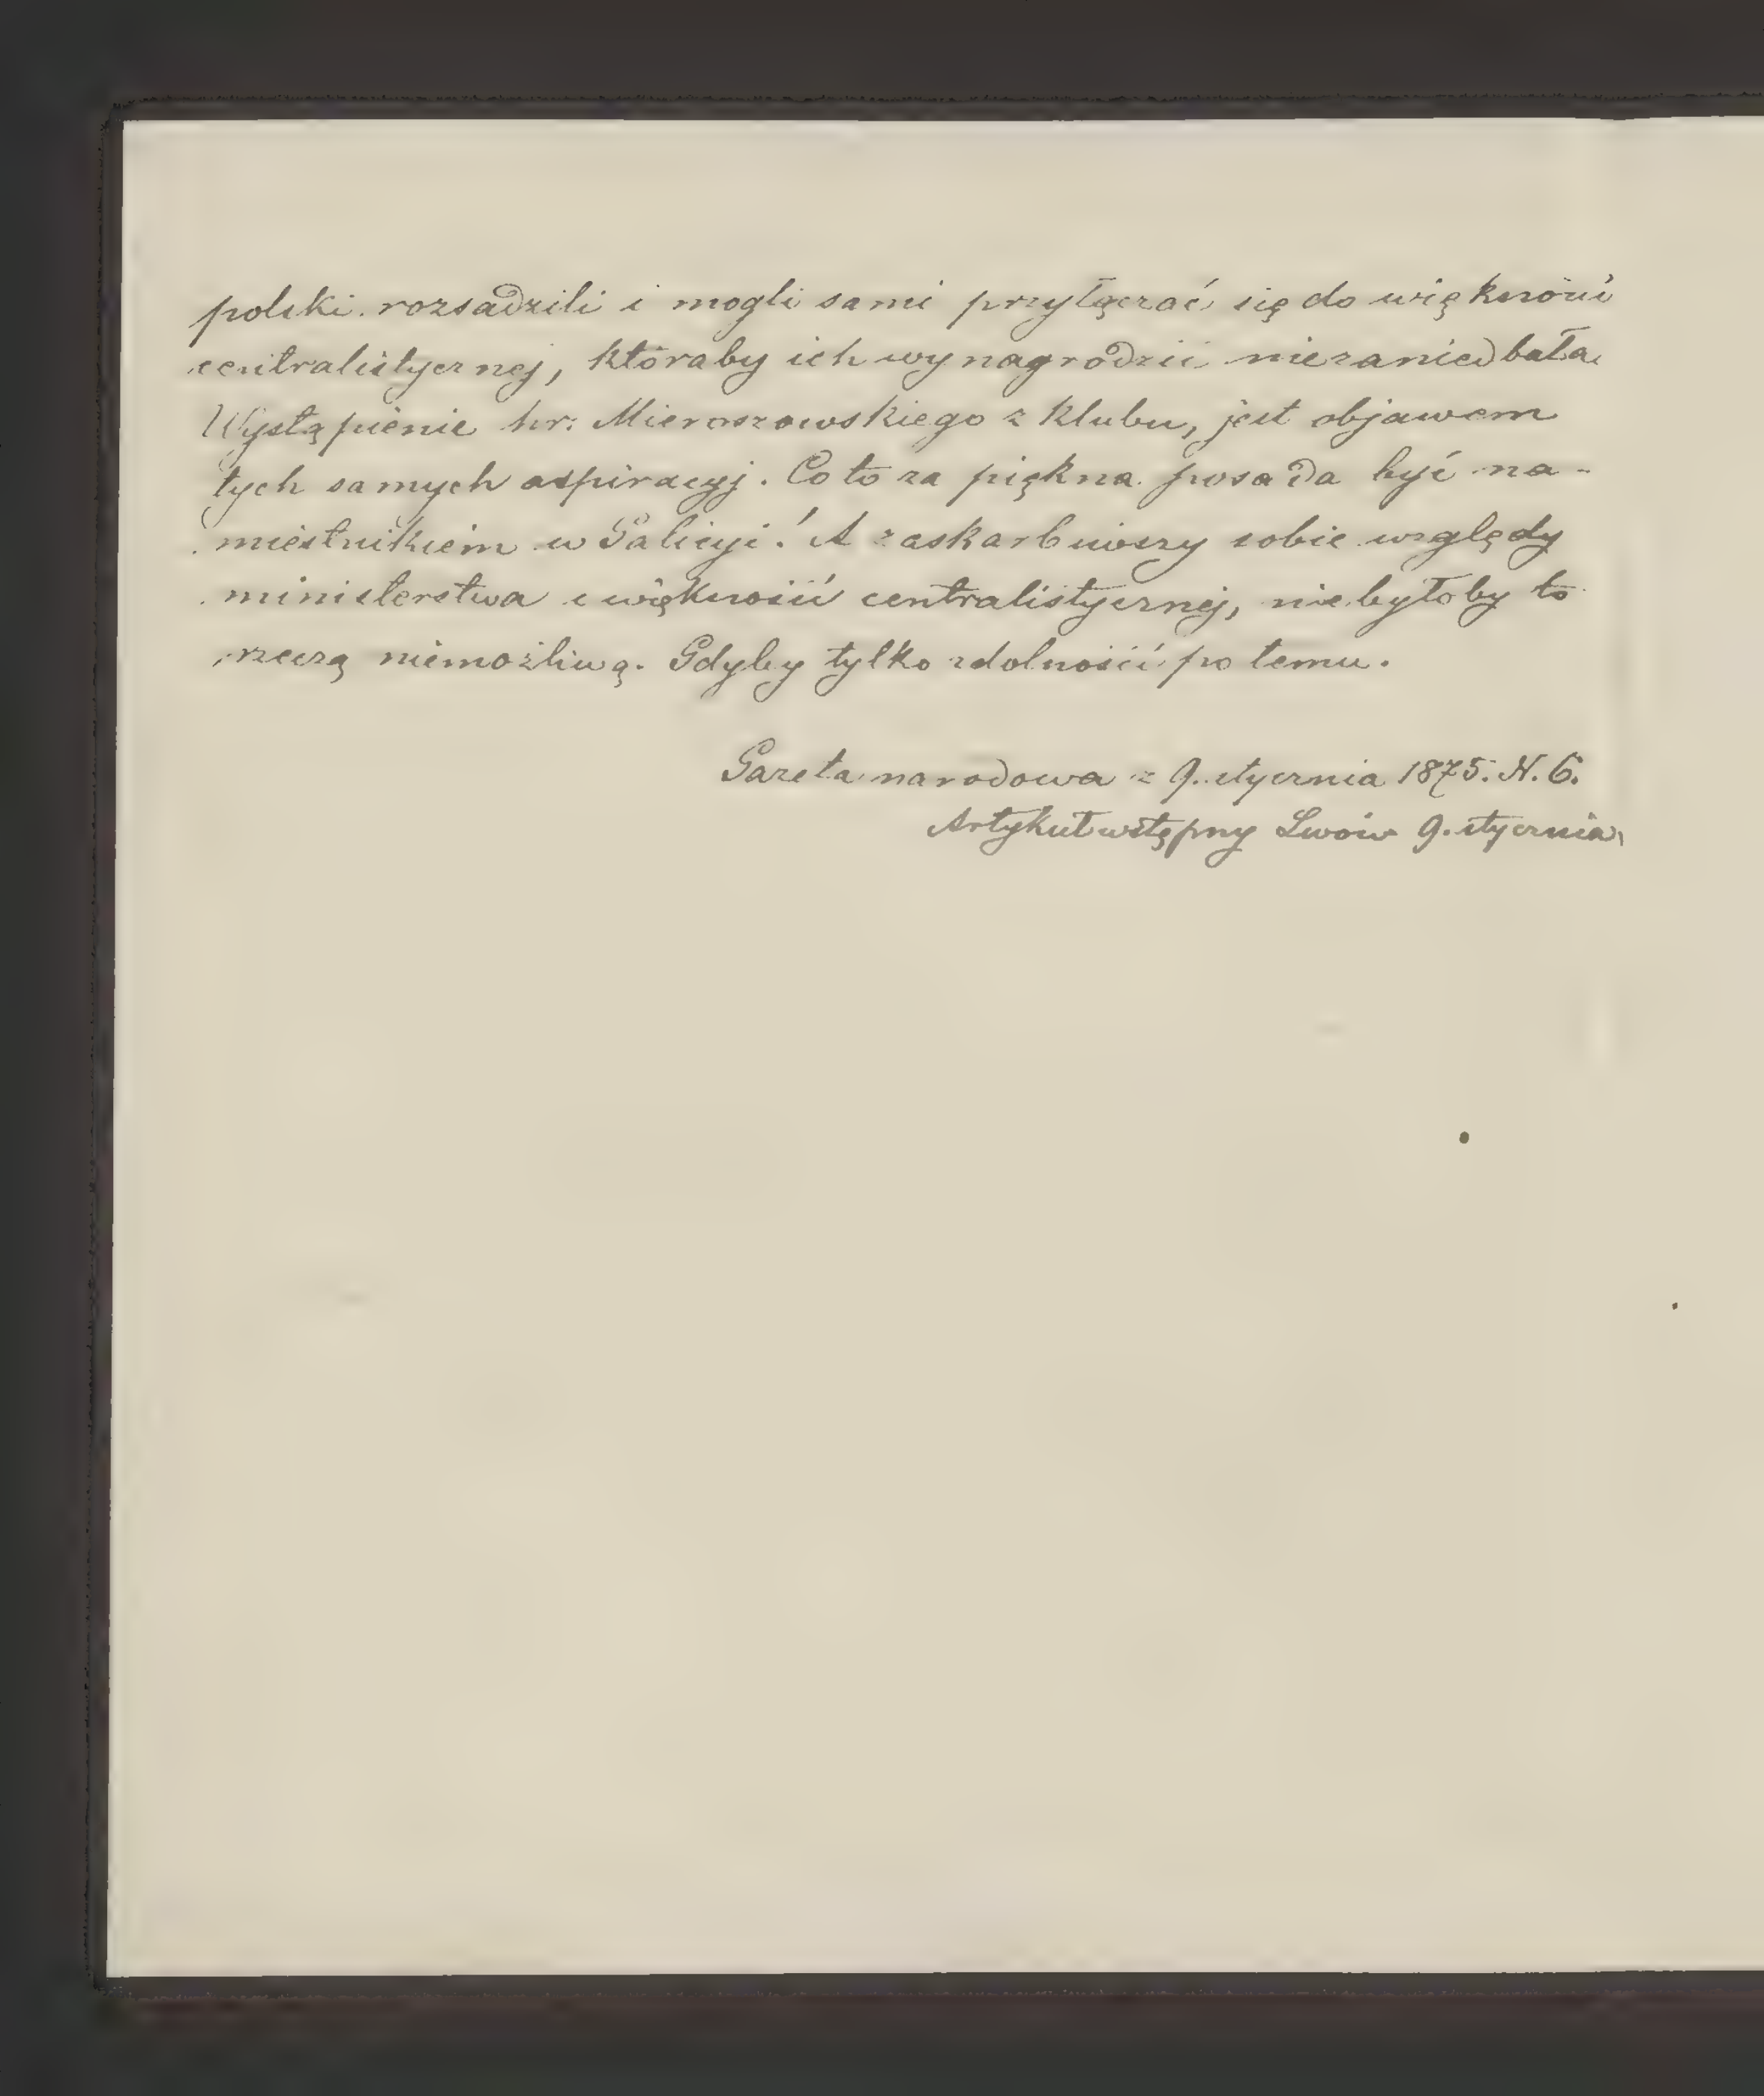 polski rozsadzili i mogli sami przyłączać się do większości
centralistycznej, któraby ich wynagrodzić niezaniedbała.
Wystąpienie hr: Mieroszowskiego z klubu, jest objawem
tych samych aspiracyj. Co to za piękna posada być na-
miestnikiem w Galicyi! A zaskarbiwszy sobie względy
ministerstwa i większości centralistycznej, niebyłoby to
rzeczą niemożliwą. Gdyby tylko zdolności po temu.
Gazeta narodowa z 9. stycznia 1875. N. 6.
Artykuł wstępny Lwów 9. stycznia.